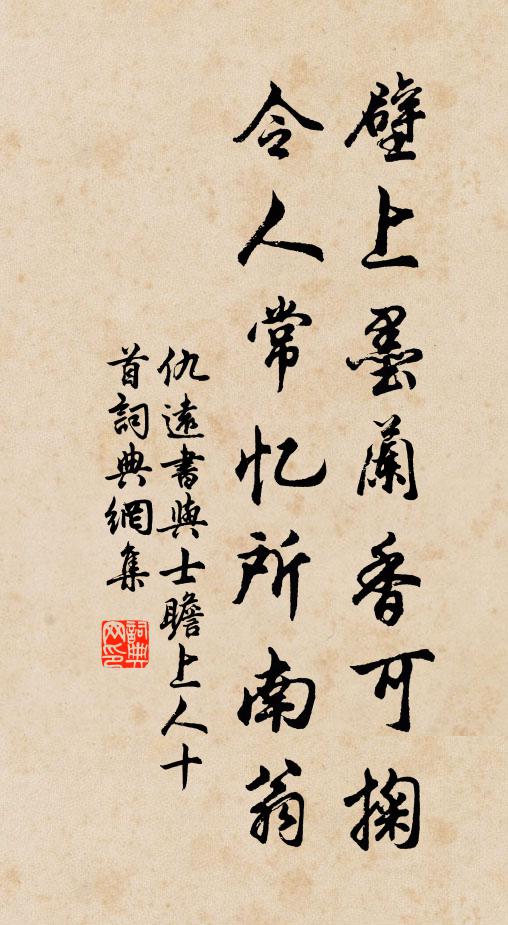 壁上墨蘭香可掬
令人常忆所南翁
仇遠書與士瞻上人十
首詞典網集
詞典
网印